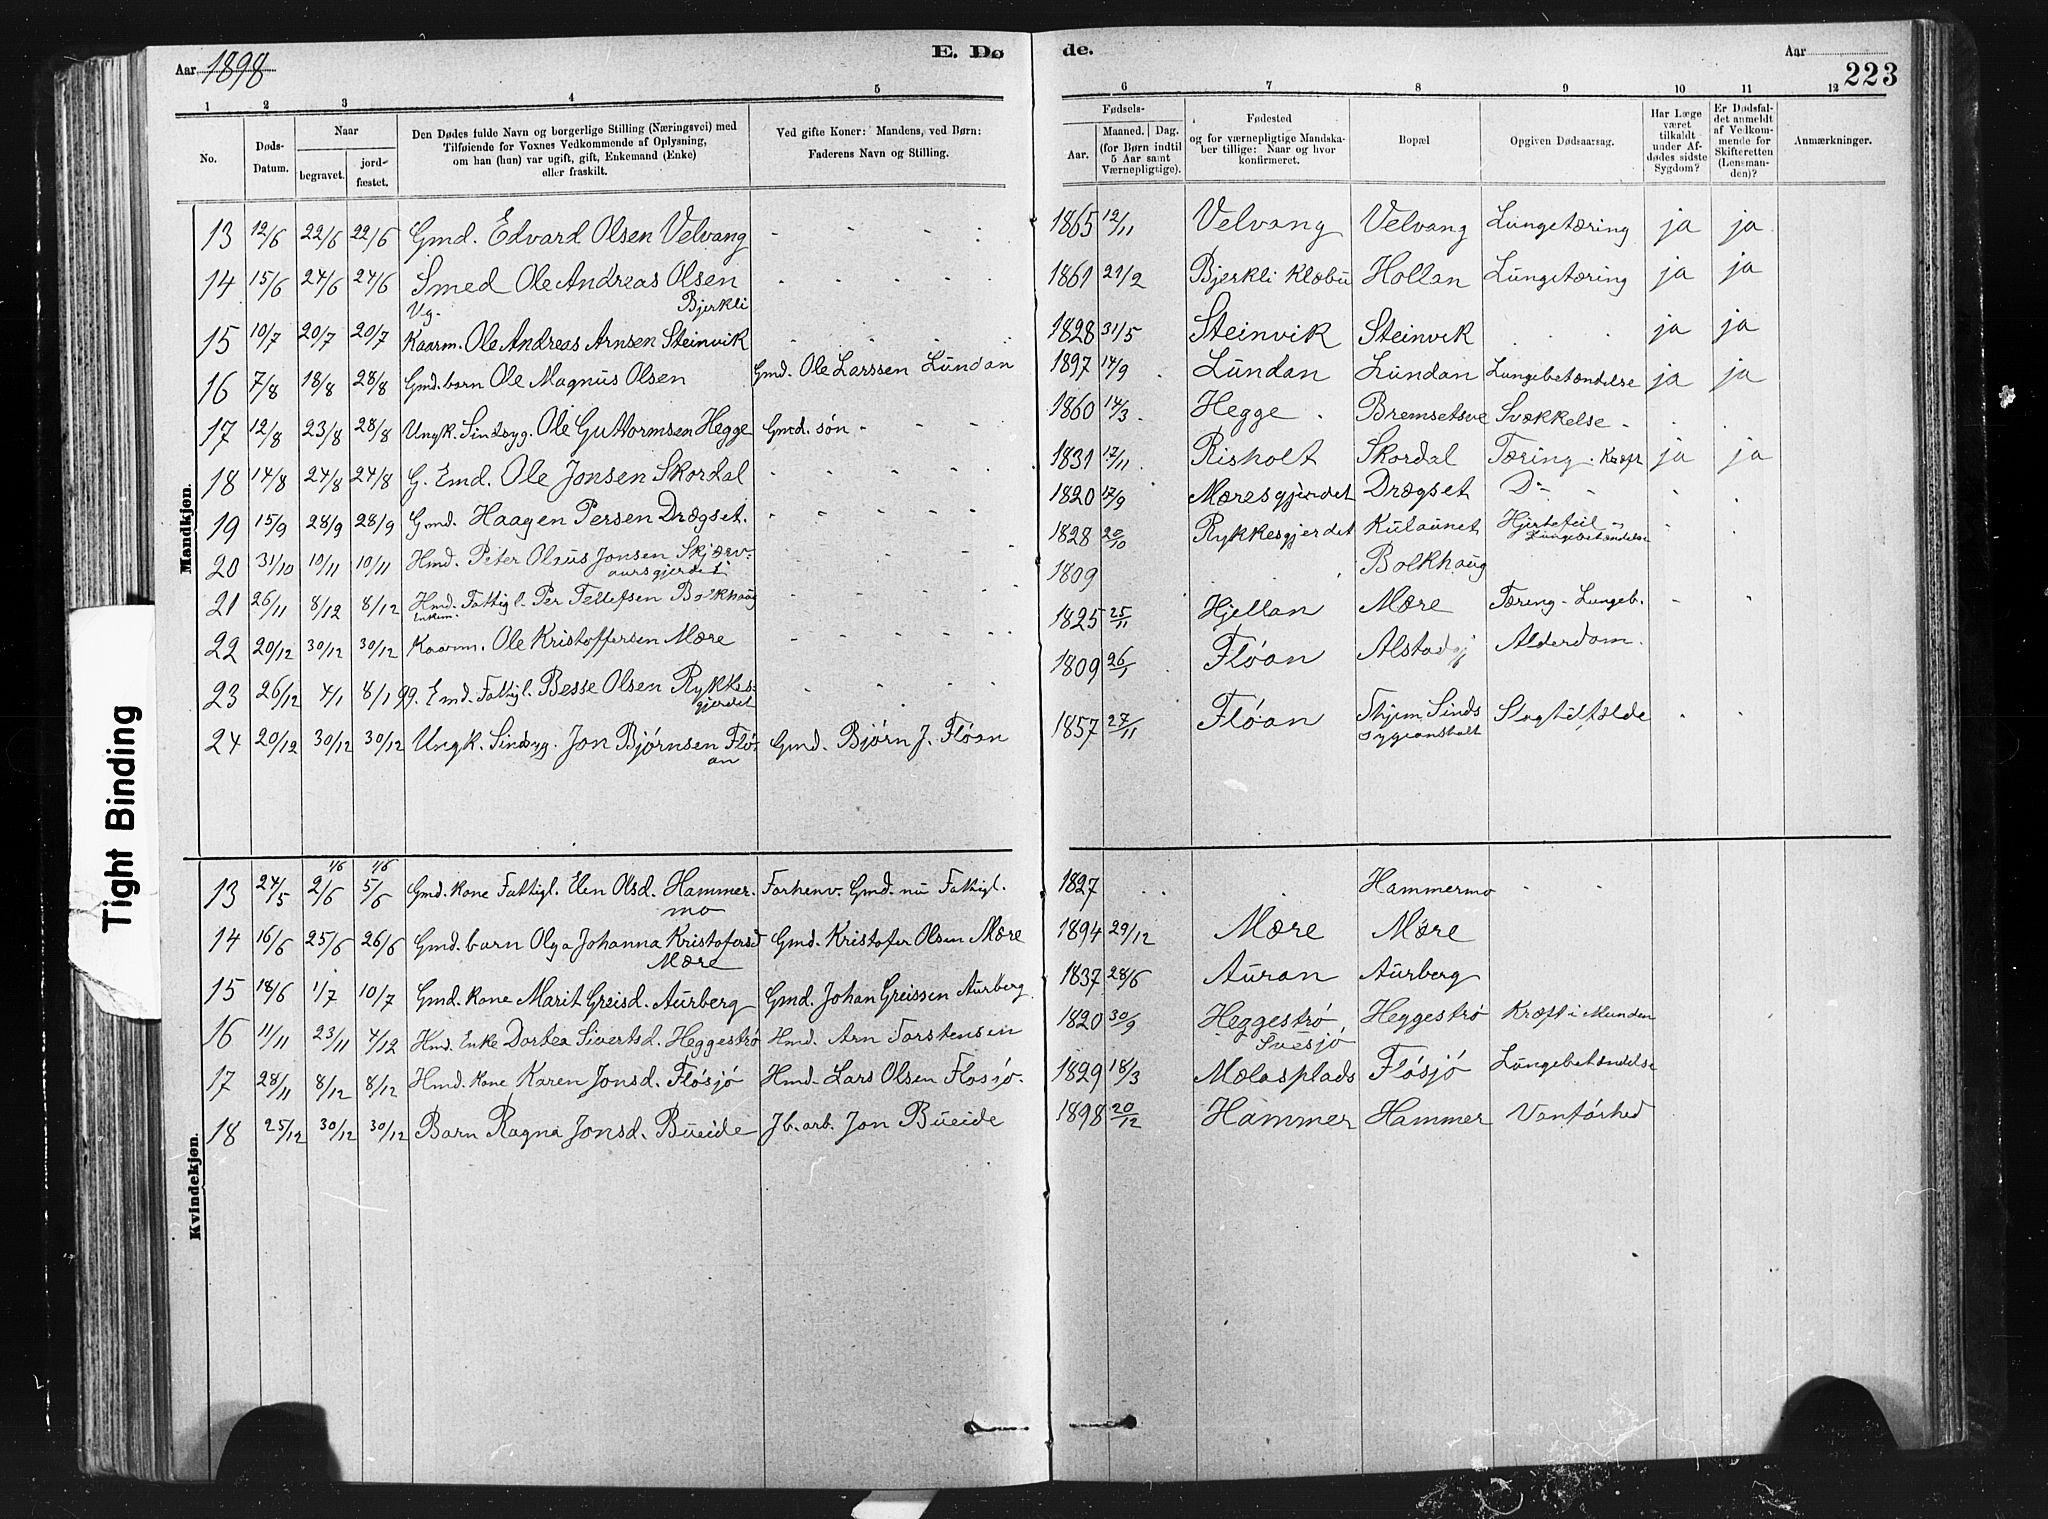 Aar 1898
E. Dø
de.
Aar
223
1 2 3 4 5 6 7 8 9 10 11 12
No.
Døds-Datum.
Naar
begravet.
jord-fæstet.
Den Dødes fulde Navn og borgerlige Stilling (Næringsvei) med
Tilføiende for Voxnes Vedkommende af Oplysning,
om han (hun) var ugift, gift, Enkemand (Enke)
eller fraskilt.
Ved gifte Koner: Mandens, ved Børn:
Faderens Navn og Stilling.
Fødsels-
Aar.
Maaned. Dag.
(for Børn indtil
5 Aar samt
Værnepligtige).
Fødested
og for værnepligtige Mandska-
ber tillige: Naar og hvor
konfirmeret.
Bopæl
Opgiven Dødsaarsag.
Har Læge
været
tilkaldt
under Af-
dødes sidste
Sygdom?
Er Dødsfal-
det anmeldt
af Vedkom-
mende for
Skifteretten
(Lensman-
den)?
Anmærkninger.
Mandkjøn.
13 12/6 22/6 22/6 Gmd. Edvard Olsen Velvang - - - - 1865 12/11 Velvang Velvang Lungetæring ja ja
14 15/6 24/6 24/6 Smed Ole Andreas Olsen Bjerkli - - - - 1861 21/2 Bjerkli Klæbu Hollan Lungetæring ja ja
15 10/7 20/7 20/7 Vg. Kaarm. Ole Andreas Arnsen Steinvik 1828 31/5 Steinvik Steinvik . . ja ja
16 7/8 18/8 28/8 Gmd. barn Ole Magnus Olsen Gmd. Ole Larssen Lundan 1897 14/9 Lundan Lundan Lungebetændelse ja ja
17 12/8 23/8 28/8 Ungk. Sindsyg. Ole Guttormsen Hegge Gmd. søn - - - 1860 14/3 Hegge Bremsetsve Svækkelse
18 14/8 24/8 24/8 G. Emd. Ole Jonsen Skordal - - - - 1831 17/11 Risholt Skordal Tæring. Kræft ja ja
19 15/9 28/9 28/9 Gmd. Haagen Persen Drægset. - - - - 1820 17/9 Mæresgjerdet Drægset Do
20 31/10 10/11 10/11 Hmd. Peter Olaus Jonsen Skjærv-
aursgjerdet - - - - 1828 20/10 Rykkesgjerdet Kulaunet Hjertefeil -
Lungebetændelse
21 26/11 8/12 8/12 Hmd. Fattigl. Per Tellefsen Bolkhaug
Enkem. - - - - 1809 Bolkhaug
22 20/12 30/12 30/12 Kaarm. Ole Kristoffersen Mære - - - - 1825 25/11 Hjellan Mære Tæring - Lungeb.
23 26/12 4/1 8/1 99. Emd. Fattigl. Besse Olsen Rykkes-
gjerdet 1809 26/1 Flóan Alstadgj Alderdom.
24 20/12 30/12 30/12 Ungk. Sindsyg. Jon Bjørnsen Fló-
an Gmd. Bjørn J. Flóan 1857 27/11 Flóan Thjem Sinds
sygeanstalt Slagtilfælde
Kvindekjøn.
13 24/5 1/6 2/6 1/6 5/6 Gmd. kone Fattigl. Elen Olsd. Hammer-
mo Forhenv. Gmd. nu Fattigl. 1827 . . . Hammermo
14 16/6 25/6 26/6 Gmd. barn Olga Johanna Kristofersd
Mære Gmd. Kristofer Olsen Mære 1894 29/12 Mære Mære
15 18/6 1/7 10/7 Gmd. kone Marit Greisd. Aurberg Gmd. Johan Greissen Aurberg 1837 28/6 Auran Aurberg
16 11/11 23/11 4/12 Hmd. Enke Dortea Sivertsd. Heggestrø Hmd. Arn Torstensen 1820 30/9 Heggestrø Heggestrø Kræft i Munden
17 28/11 8/12 8/12 Hmd. kone Karen Jonsd. Flósjó Hmd. Lars Olsen Flosjo. 1829 18/3 Svesjó
Mælasplads Flósjó Lungebetændelse
18 25/12 30/12 30/12 Barn Ragna Jonsd. Bueide Jb. arb. Jon Bueide 1898 20/12 Hammer Hammer Vanførhed
Tight Binding